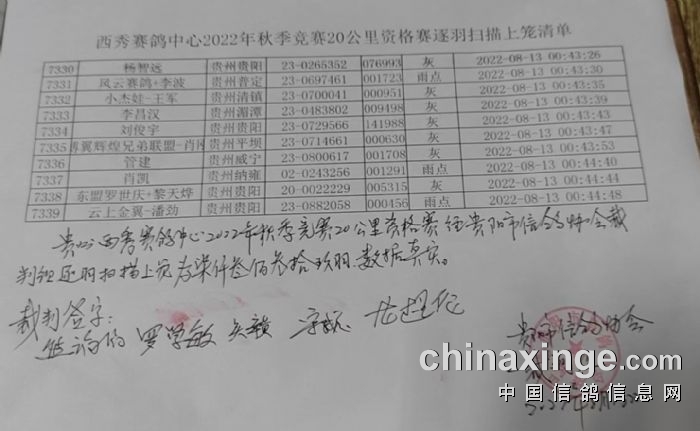 西秀赛鸽中心2022年秋季竞赛20公里资格赛逐羽扫描上笼清单
7330 杨智远 贵州贵阳 23-0265352 076993 灰 2022-08-13 00:43:26
7331 风云赛鸽+李波 贵州普定 23-0697461 001723 雨点 2022-08-13 00:43:30
7332 小杰娃-王军 贵州清镇 23-0700041 000951 灰 2022-08-13 00:43:35
7333 李昌汉 贵州湄潭 23-0483802 009498 灰 2022-08-13 00:43:39
7334 刘俊宇 贵州贵阳 23-0729566 141988 灰 2022-08-13 00:43:43
7335 博翼辉煌兄弟联盟-肖 贵州平坝 23-0714661 000630 灰 2022-08-13 00:43:47
7336 管建 贵州威宁 23-0800617 001708 灰 2022-08-13 00:43:53
7337 肖凯 贵州纳雍 02-0243256 001291 雨点 2022-08-13 00:44:40
7338 东盟罗世庆+黎天烨 贵州贵阳 20-0022229 005315 灰 2022-08-13 00:44:44
7339 云上金翼-潘劲 贵州贵阳 23-0882058 000456 雨点 2022-08-13 00:44:48
贵州西秀赛鸽中心2022年秋季竞赛20公里资格赛经贵阳市信鸽协会裁
判组逐羽扫描上笼为柒仟叁佰叁拾玖羽,数据真实。
裁判签字:
罗学敏
贵阳市信鸽协会
chinaxinge.com
中国信鸽信息网